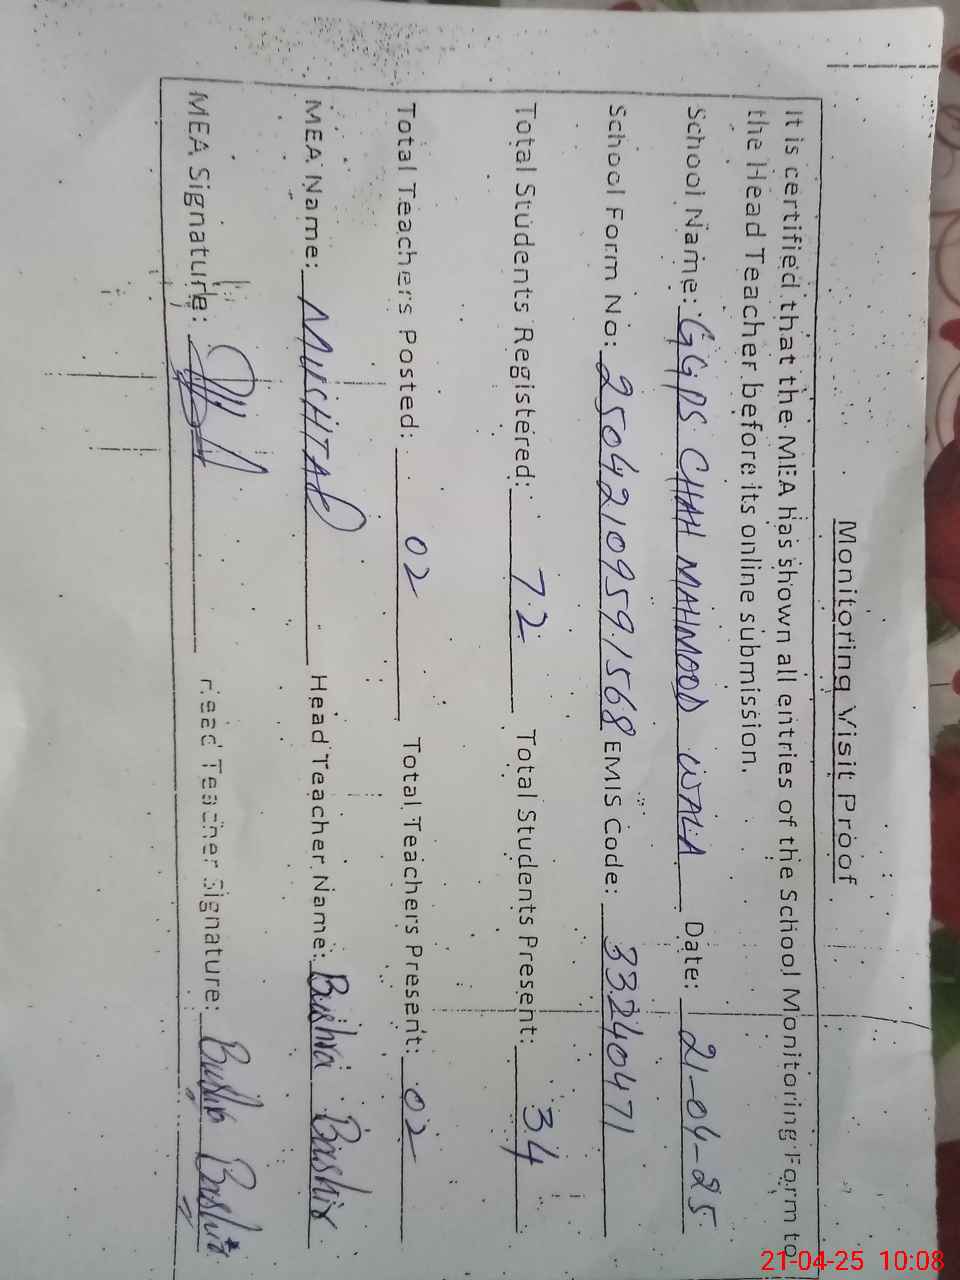 Monitoring Visit Proof
It is certified that the MEA has shown all entries of the School Monitoring Form to
the Head Teacher before its online submission.
School Name: GGPS CHAH MAHMOOD WALA Date: 21-04-25
School Form No: 25042109591568 EMIS Code: 33240471
Total Students Registered: 72 Total Students Present: 34
Total Teachers Posted: 02 Total Teachers Present: 02
MEA Name: MUKHTAR Head Teacher Name: Bushra Bashir
MEA Signature: Head Teacher Signature: Bushra Bashir
21-04-25 10:08